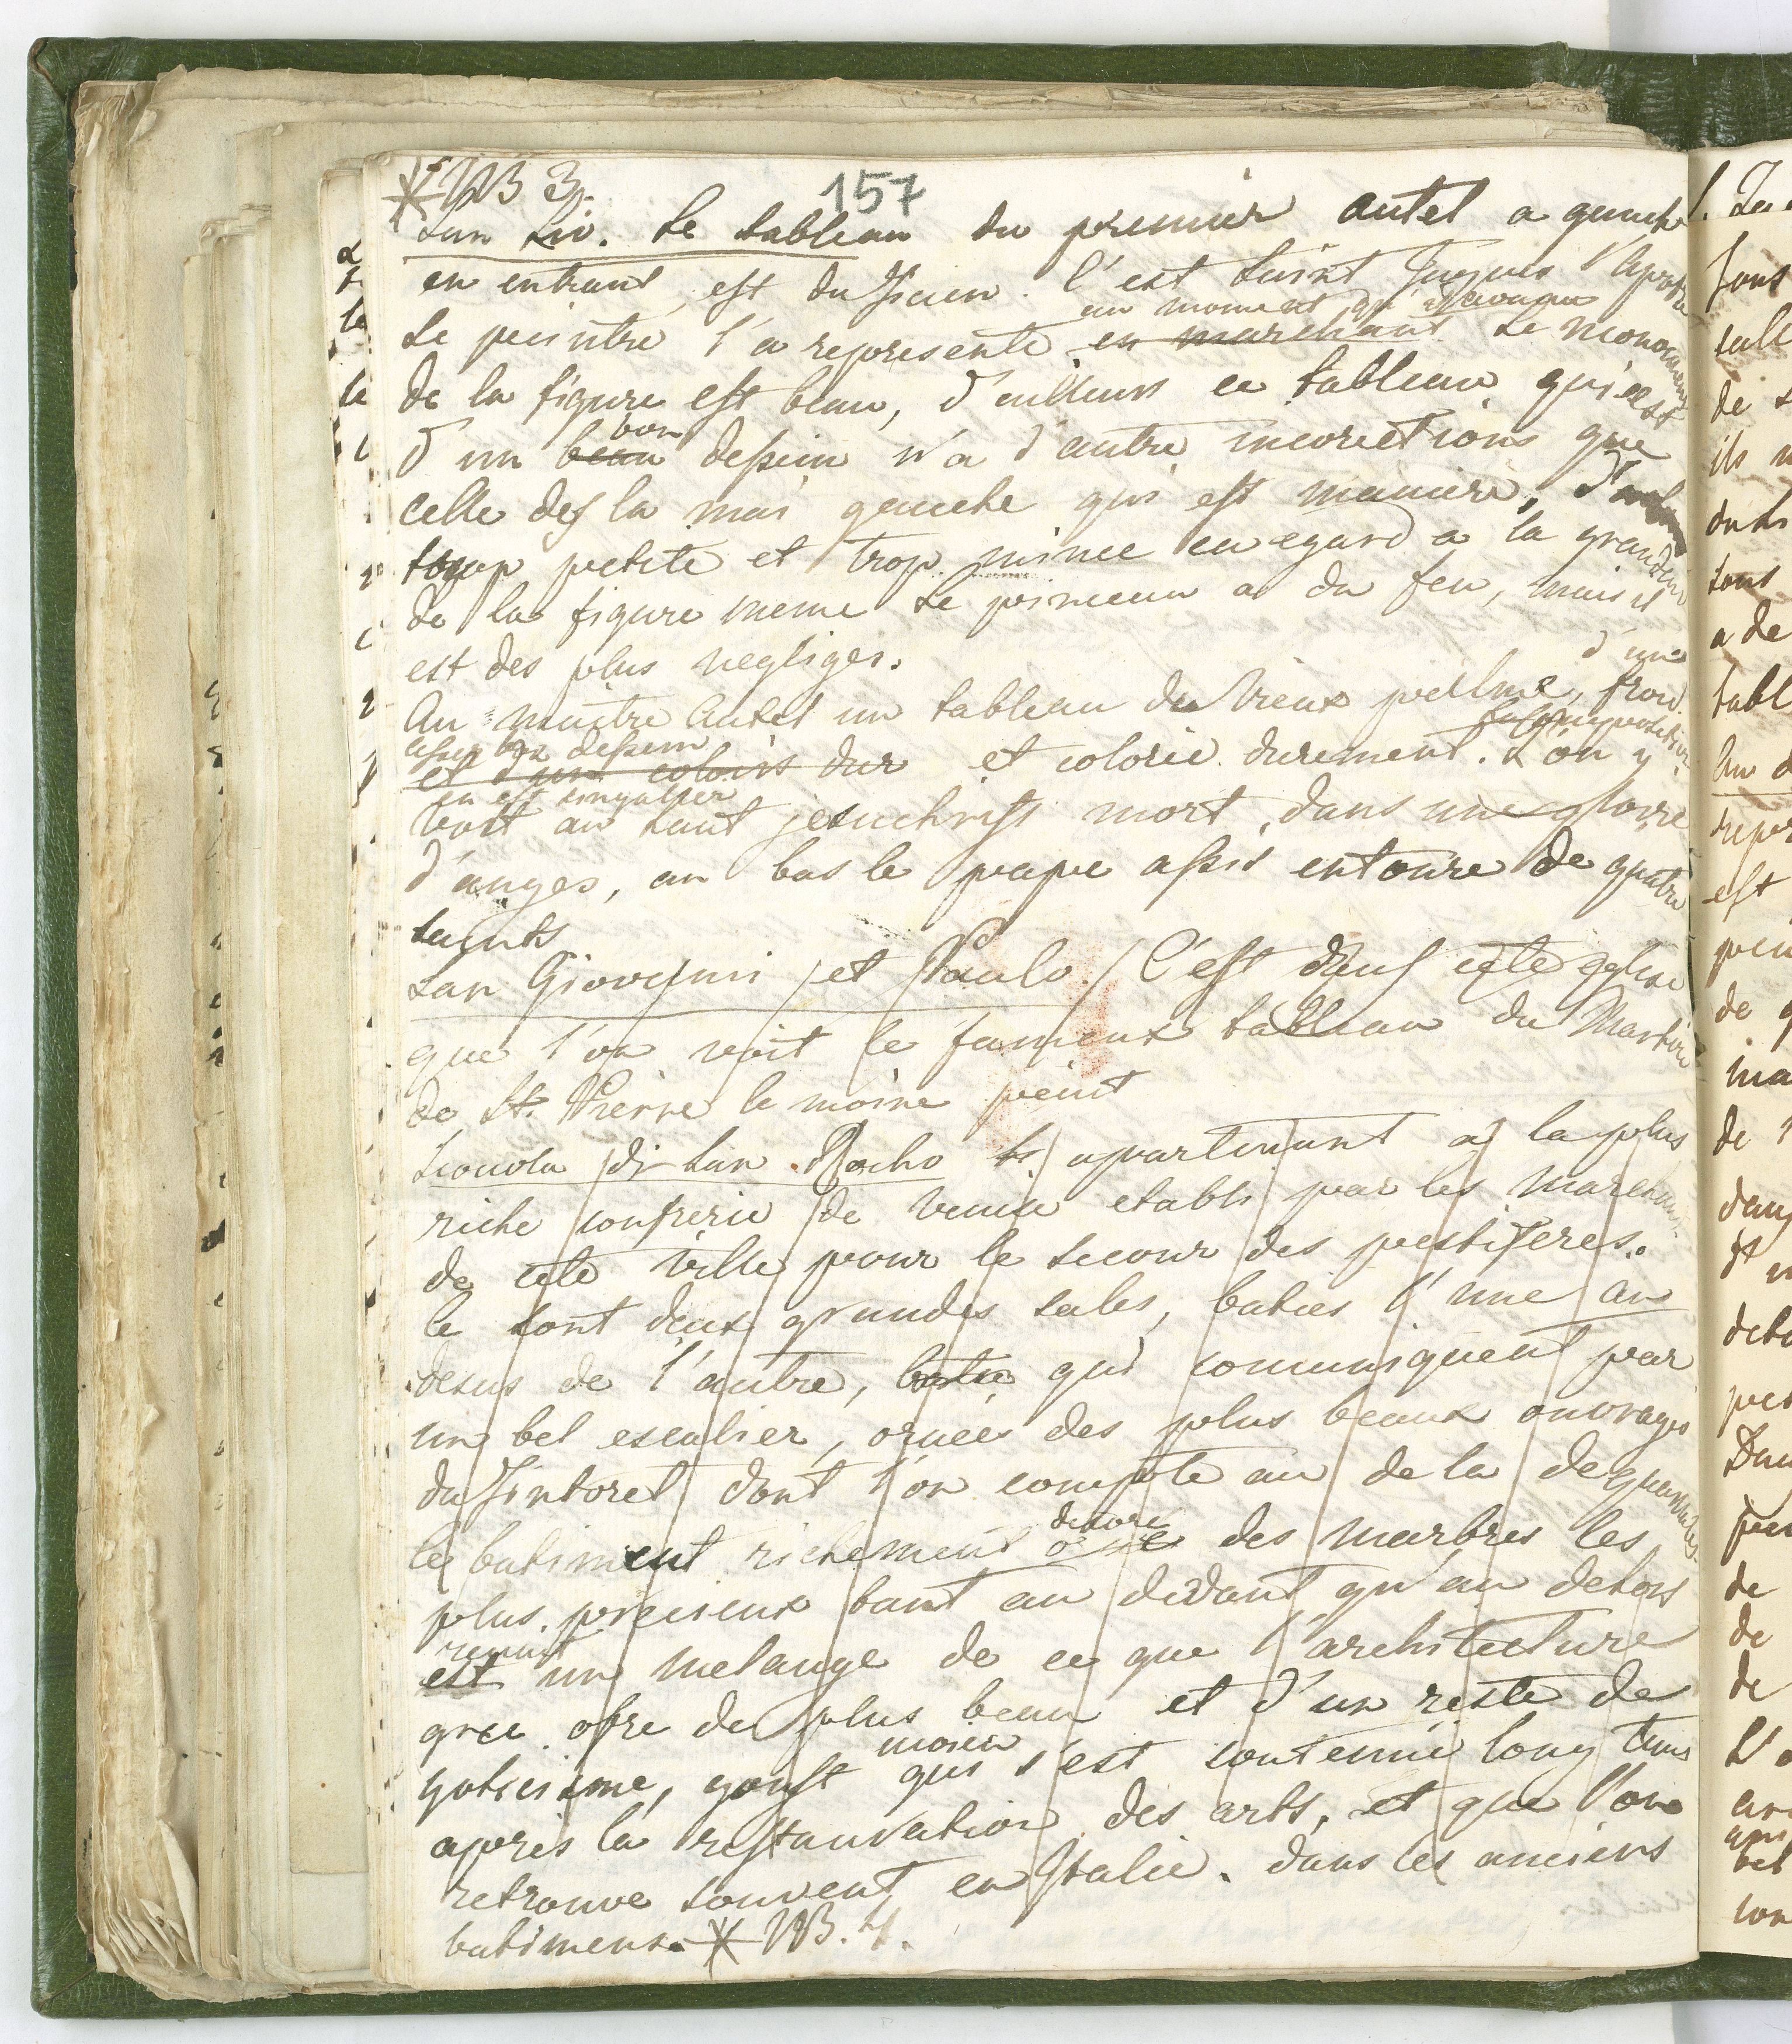 * NB 3. 157
San Lio. Le tableau du premier autel a gauche
en entrant, est du Ticien. C'est Saint Jaques l'Apotre
au moment qu'
Le peintre l'a represente en marchant. Le
de la figure est beau, d'ailleurs ce tableau qui est
bon
d'un beau dessein n'a d'autre incorections que
celle des la main gauche qui est maniere,
troup petite et trop mince eu egard a la grandeur
de la figure meme Le pinceau a du feu, mais il
est des plus negliger.
d'un
Au maitre Autel un tableau du Vieux palme, froid
sa composition
assez bon dessein
et d'un coloris dur et colorie durement. L'on y
en est singulier
voit au haut jesuchrist mort, dans une gloire
d'anges, au bas le pape assis entoure de quatre
saints
San Giovanni et Paulo. C'est dans cete eglise
que l'on voit le fameux tableau du Martire
de St. Pierre le moine peint
Scouola di San Rocho apartenant a la plus
riche confrerie de Venise etabli par les Marchans
de cete ville pour le secour des pestiferes.
Ce sont deux grandes sales, baties l'une au
desus de l'autre, batie qui comuniquent par
un bel escalier, ornees des plus beaux ouvrages
du Tintoret dont l'on compte au de la de quarantes.
decore
le batiment richement orne des marbres les
plus precieux tant au dedant qu'au dehors
reunit
est un melange de ce que l'architecture
grec ofre de plus beau et d'un reste de
goticisme, goust qui s'est soutenue long tems
apres la restauration des arts, et que l'on
retrouve souvent en Italie. dans les anciens
batimens. * NB. 4.